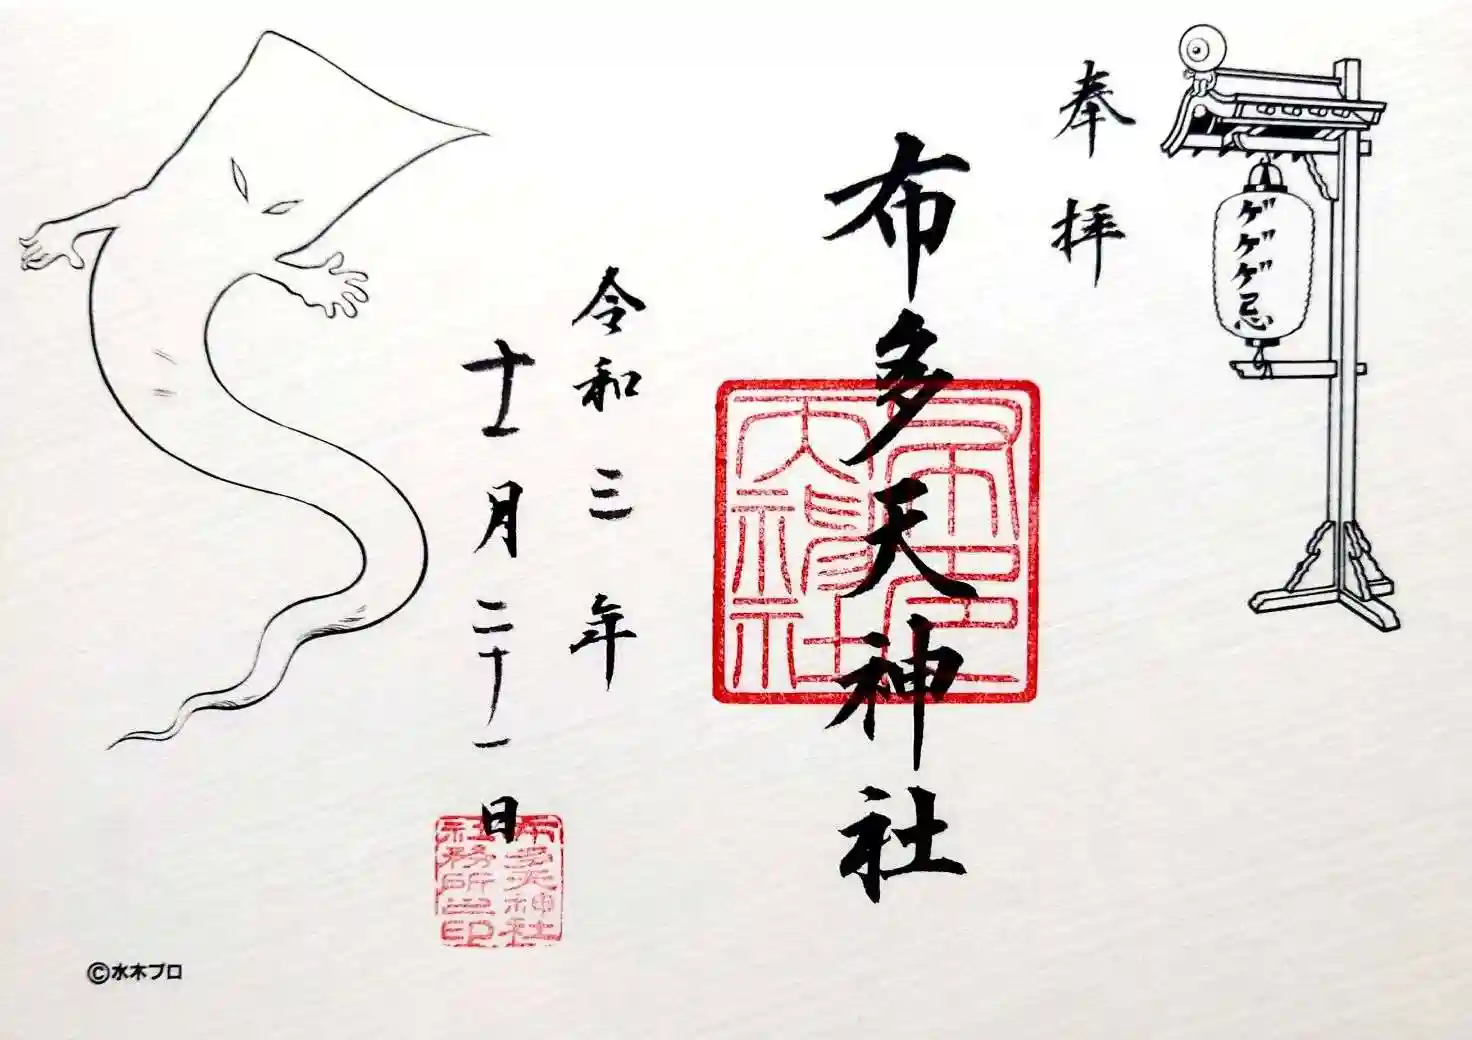 ゲゲゲ忌
奉拝
布多天神社
令和三年
十一月二十一日
布多天神社
社務所之印
©水木プロ